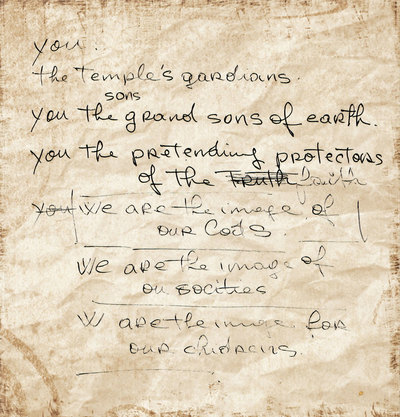 you.
the Temple's gardians.
sons
you the grand sons of earth.
you the pretending protectors
of the Truth faith
you we are the image of
our Gods.
We are the image of
ou socities
W are the image for
our